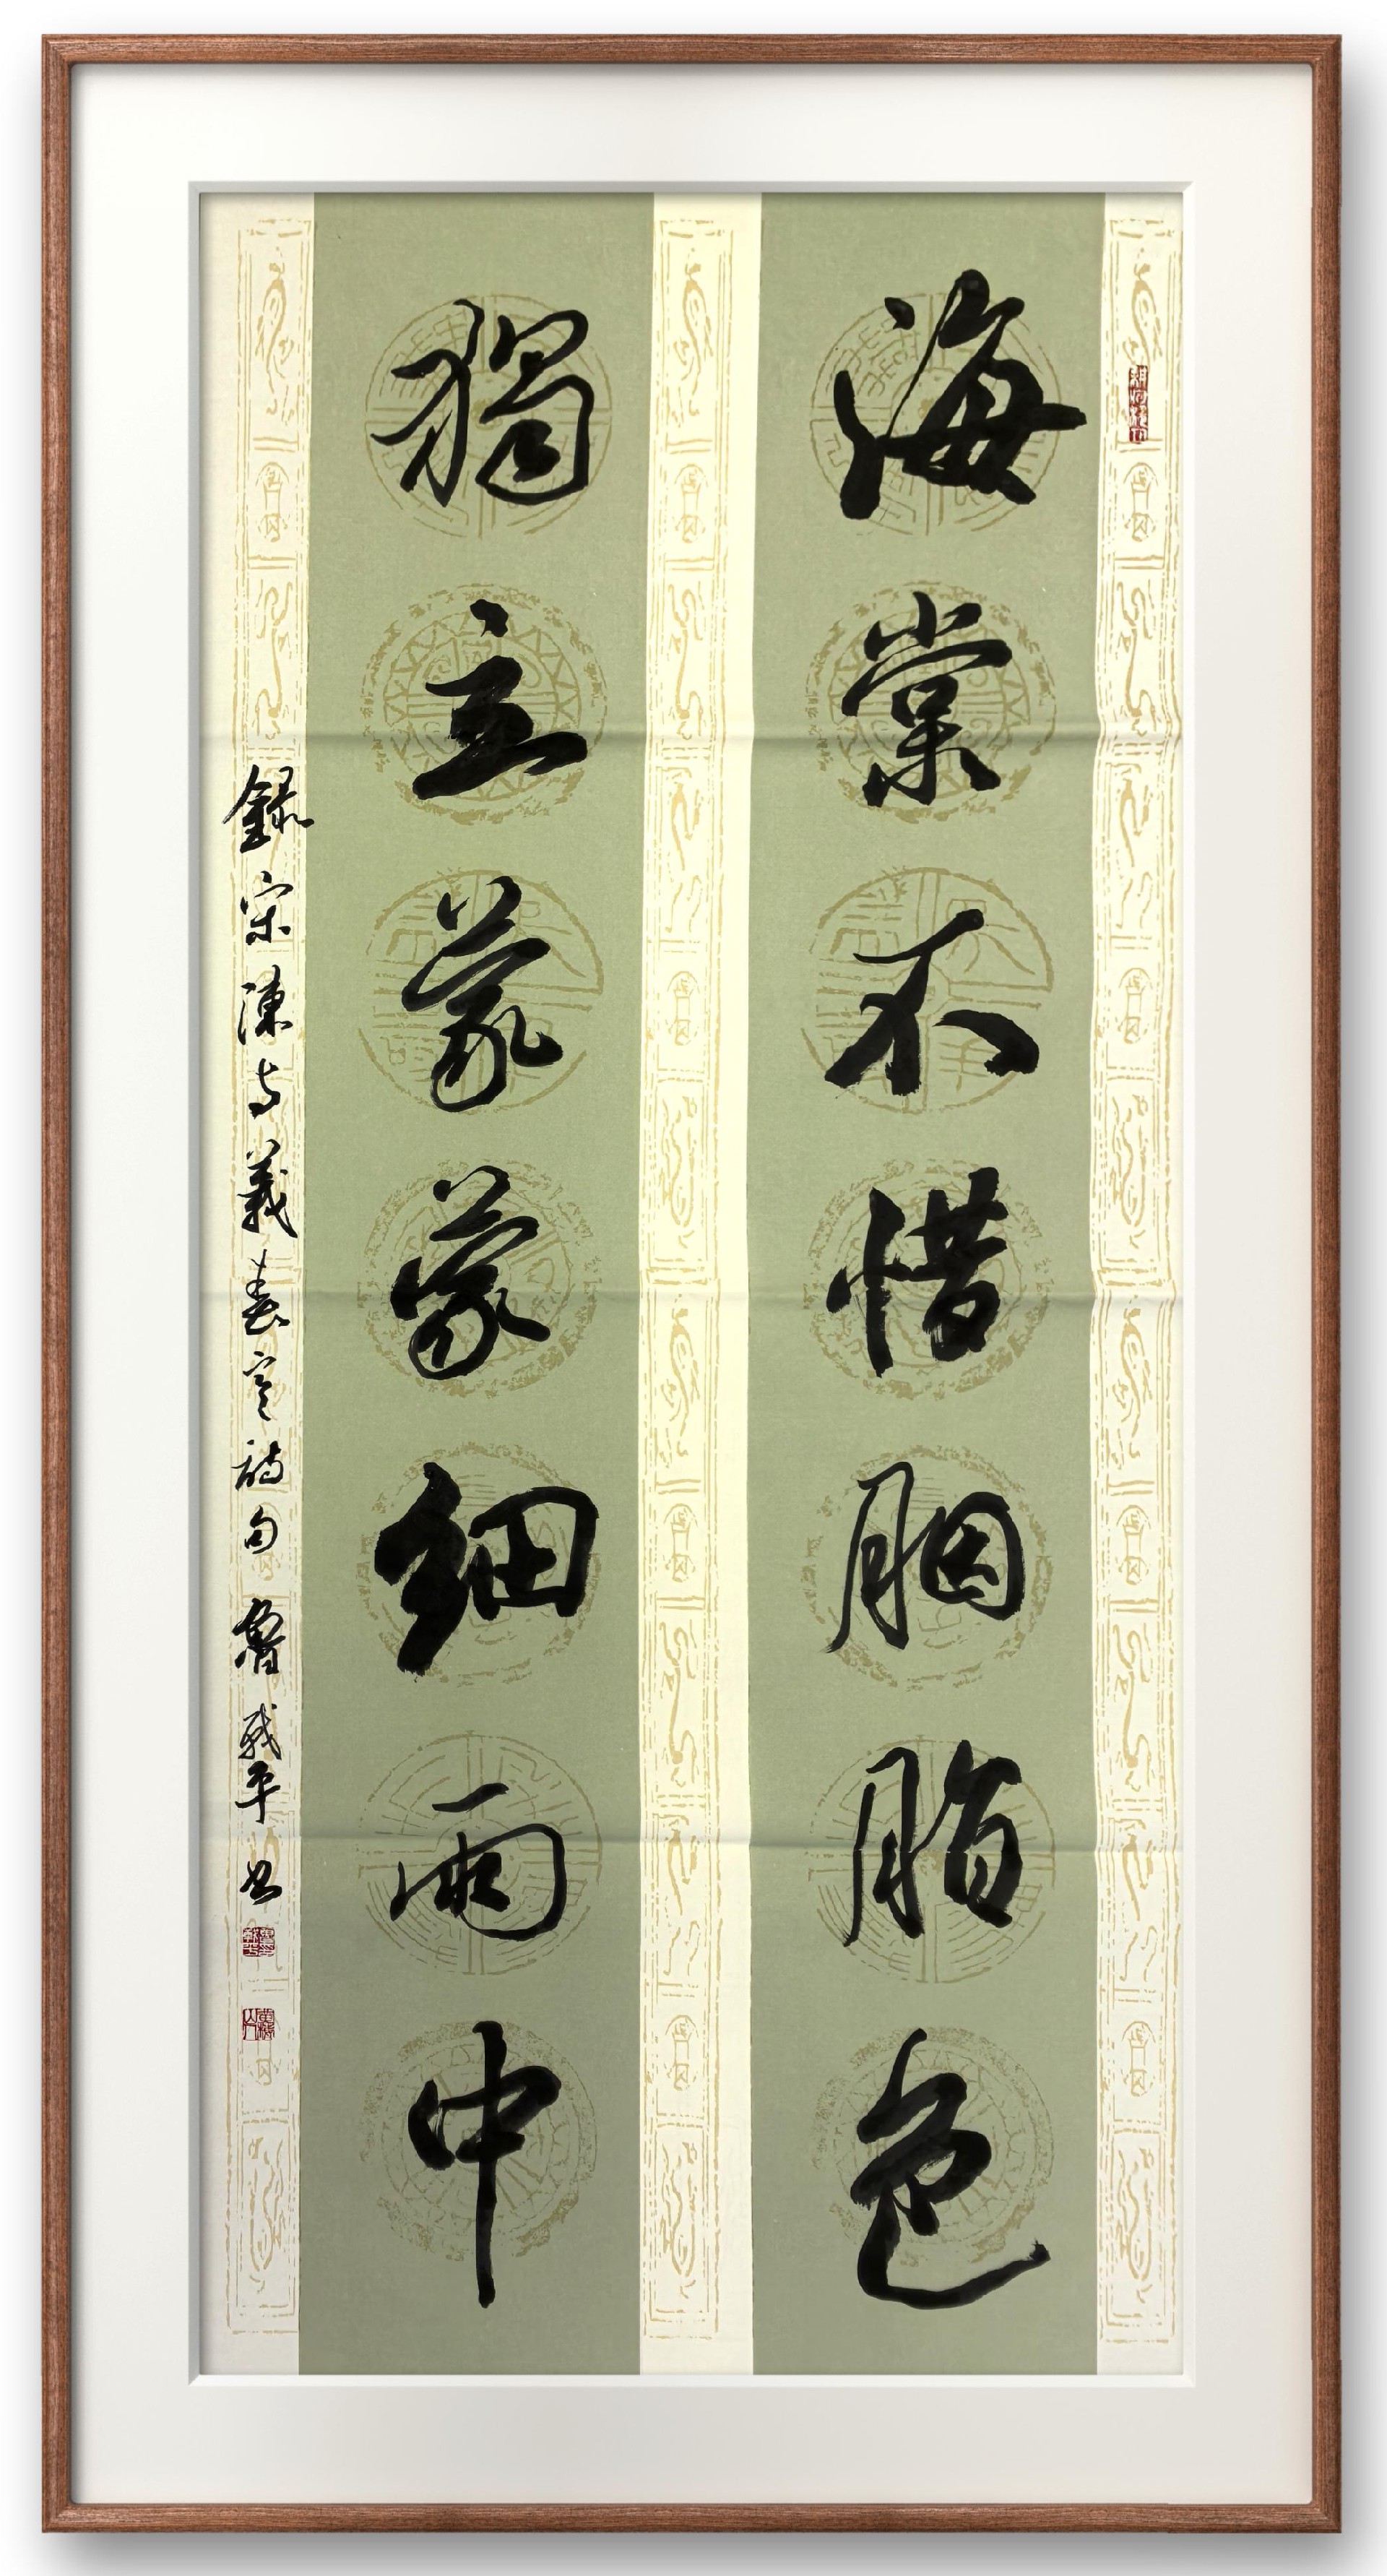 海棠不惜胭脂色
獨立蒙蒙細雨中
錄宋陳与義春寒詩句 魯戰平书